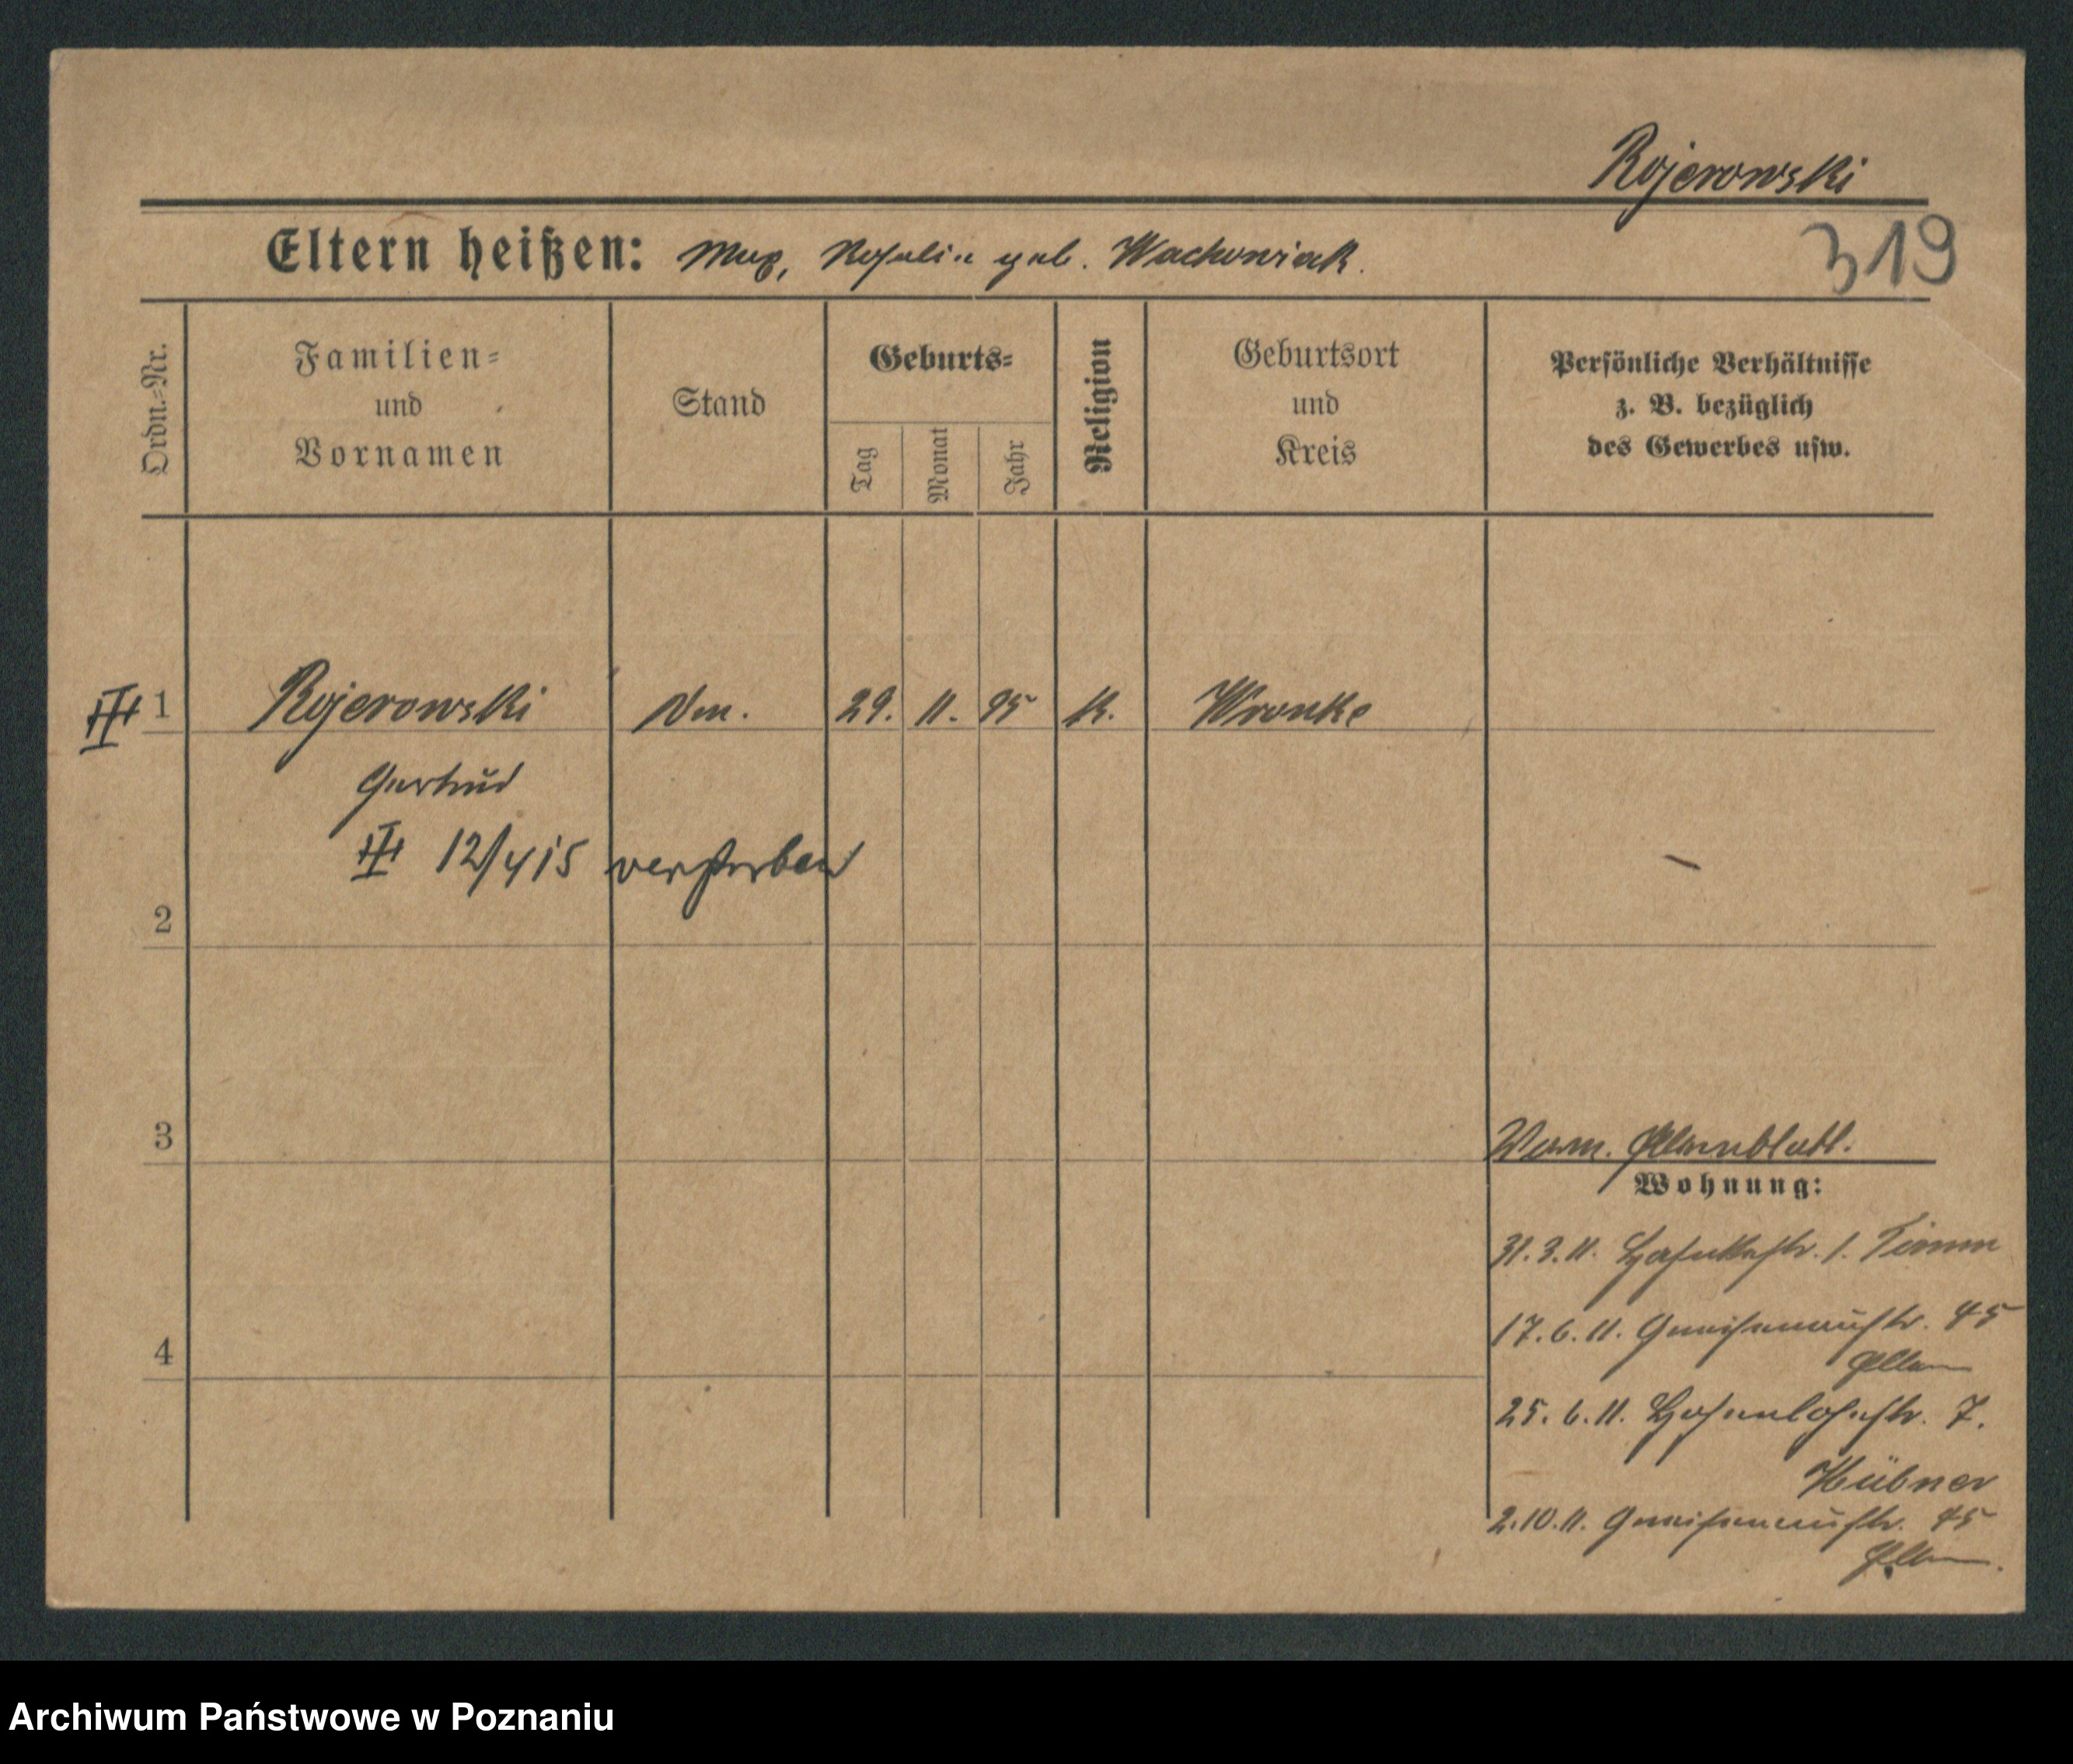 Rojerowski
319
Eltern heißen: Max, Rosalie geb. Wachowiak.
Ordn.-Nr.
Familien-
und
Vornamen
Stand
Geburts-
Tag
Monat
Jahr
Religion
Geburtsort
und
Kreis
Persönliche Verhältnisse
z. B. bezüglich
des Gewerbes usw.
III 1 Rojerowski 29. 11. 95 K. Wronke
Gertrud
III 12/4 15 verstorben
2
3
Wohnung:
31.3.11. 1. Timm
4
17.6.11. Gneisenaustr. 45
25.6.11. Hohenlohestr. 7.
Hübner
2.10.11. Gneisenaustr. 45
Archiwum Państwowe w Poznaniu